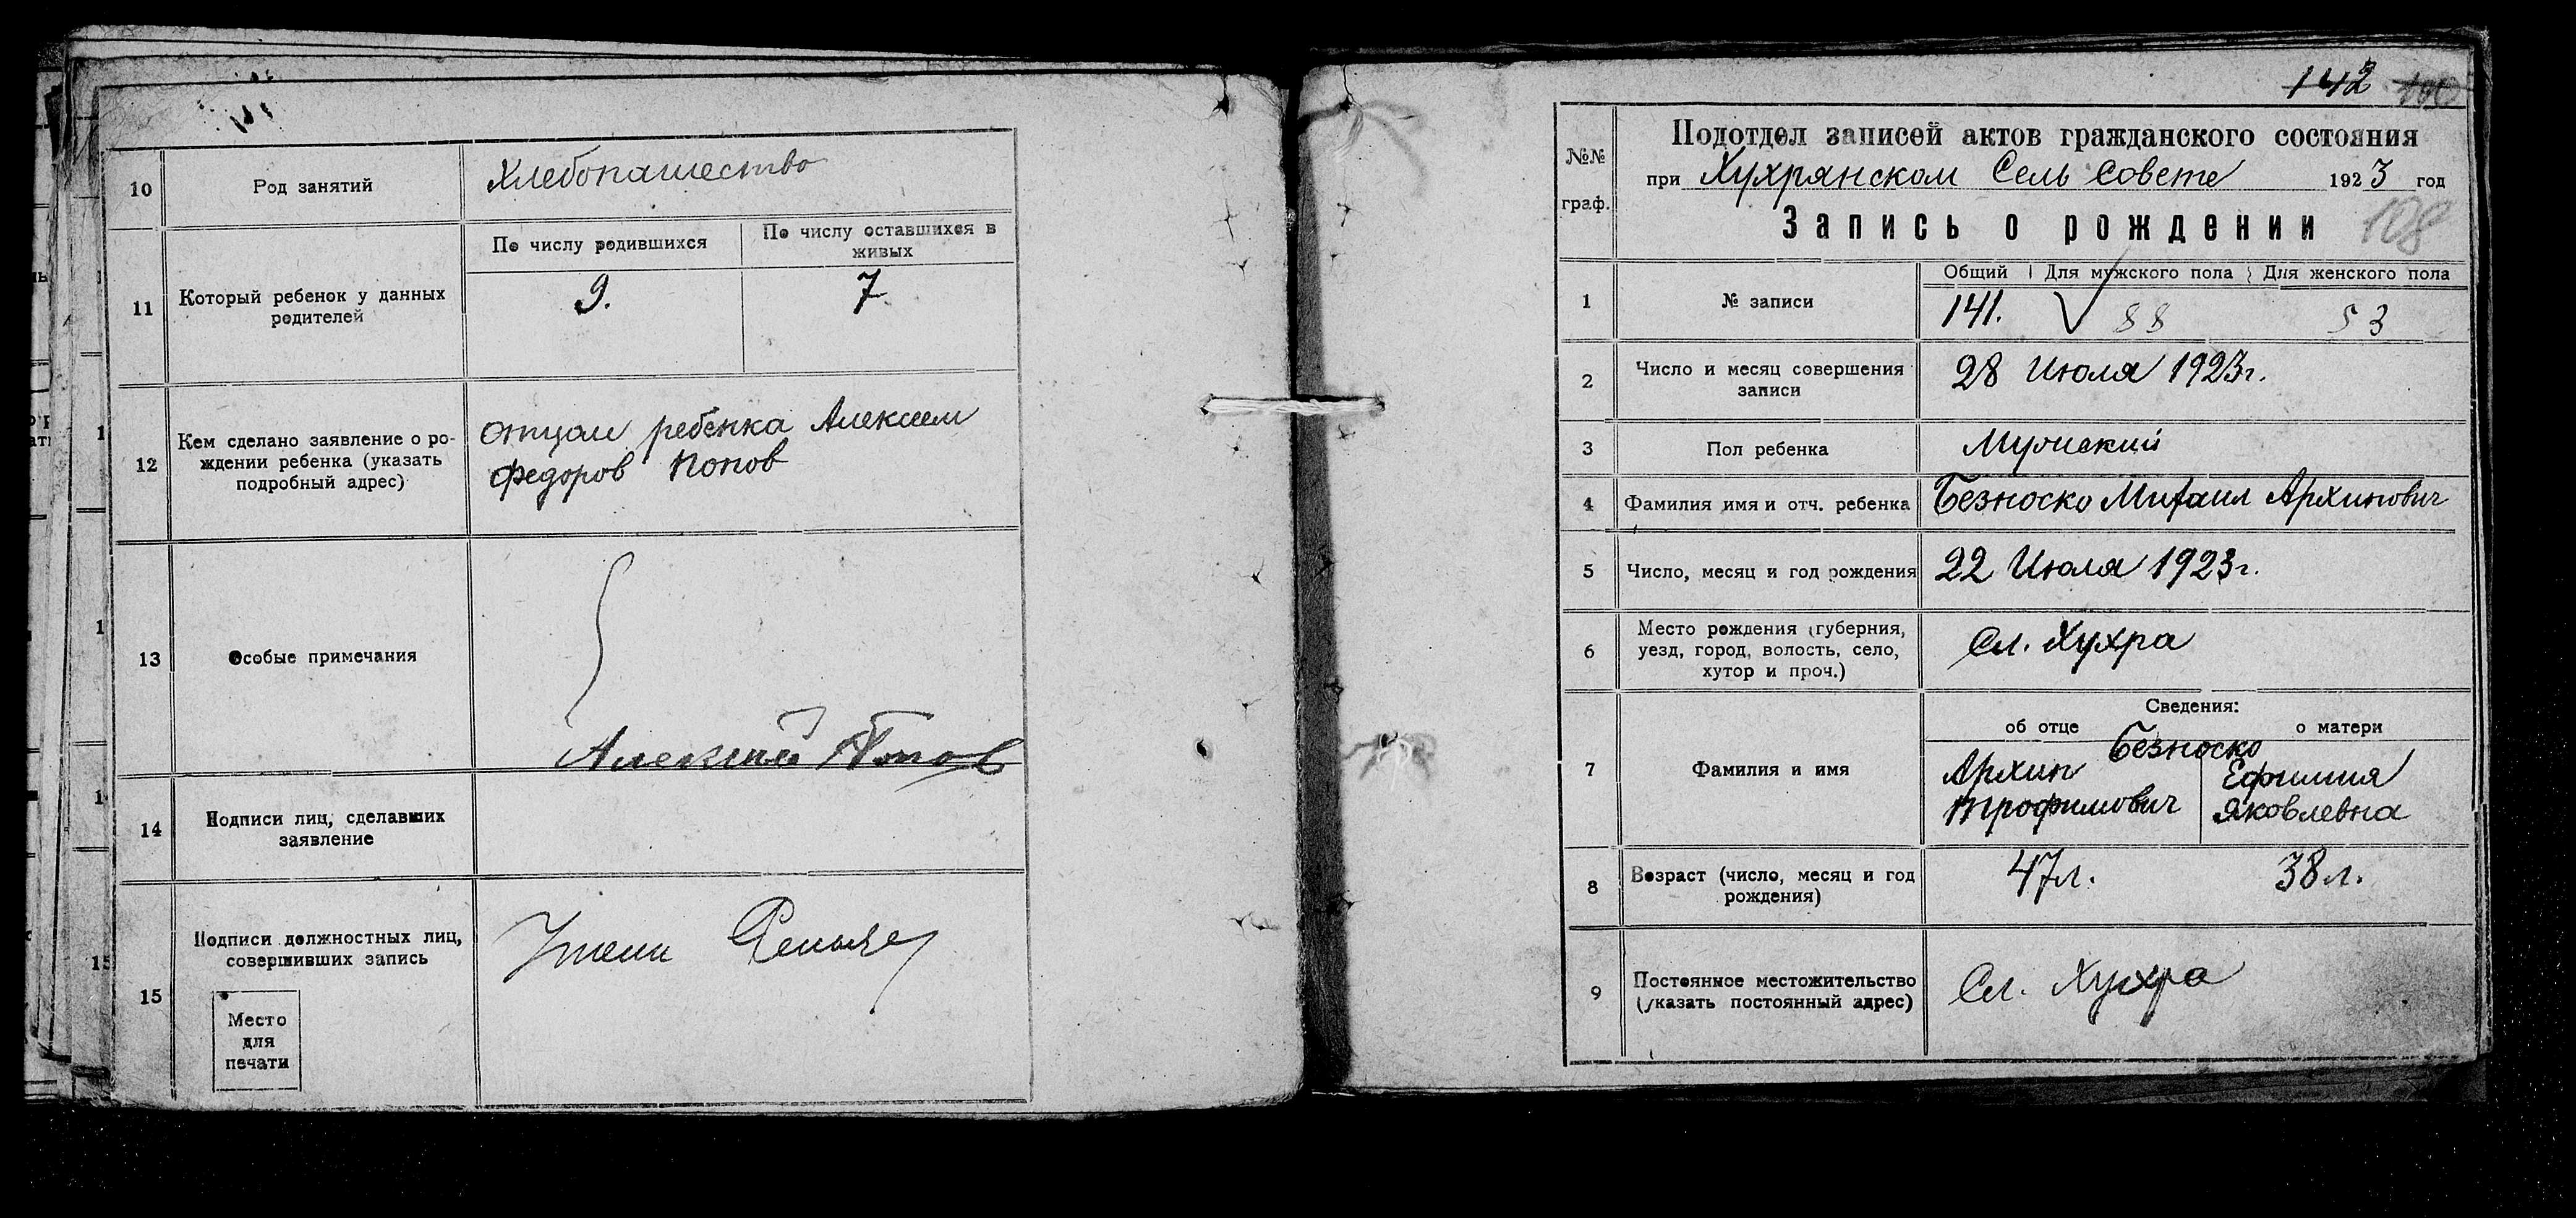 10
Род занятий
Хлебопашество
11
Который ребенок у данных
родителей
По числу родившихся
По числу оставшихся в
живых
9.
7
12
Кем сделано заявление о ро-
ждении ребенка (указать
подробный адрес)
отцом ребенка Алексеем
Федоров Попов
13
Особые примечания
Алексей Попов
14
Подписи лиц, сделавших
заявление
15
Подписи должностных лиц,
совершивших запись
Место
для
печати
142
№№
граф.
Подотдел записей актов гражданского состояния
при Хухрянском Сель Совете 1923 год
Запись о рождении
108
1
№ записи
Общий Для мужского пола Для женского пола
141. 88 53
2
Число и месяц совершения
записи
28 Июля 1923г.
3
Пол ребенка
Мужский
4
Фамилия имя и отч. ребенка
Безноско Михаил Архипович
5
Число, месяц и год рождения
22 Июля 1923г.
6
Место рождения (губерния,
уезд, город, волость, село,
хутор и проч.)
Сл. Хухра
7
Фамилия и имя
Сведения:
об отце о матери
Безноско
Архип
Трофимович
Ефимия
Яковлевна
8
Возраст (число, месяц и год
рождения)
47л. 38л.
9
Постоянное местожительство
(указать постоянный адрес)
Сл. Хухра